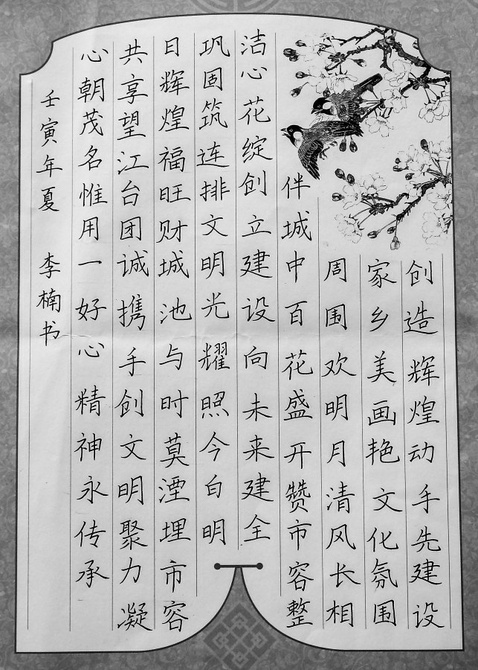 创造辉煌动手先建设
家乡美画艳文化氛围
周围欢明月清风长相
伴城中百花盛开赞市容整
洁心花绽创立建设向未来建全
巩固筑连排文明光耀照今白明
日辉煌福旺财城池与时莫湮埋市容
共享望江台团诚携手创文明聚力凝
心朝茂名惟用一好心精神永传承
壬寅年夏 李楠书